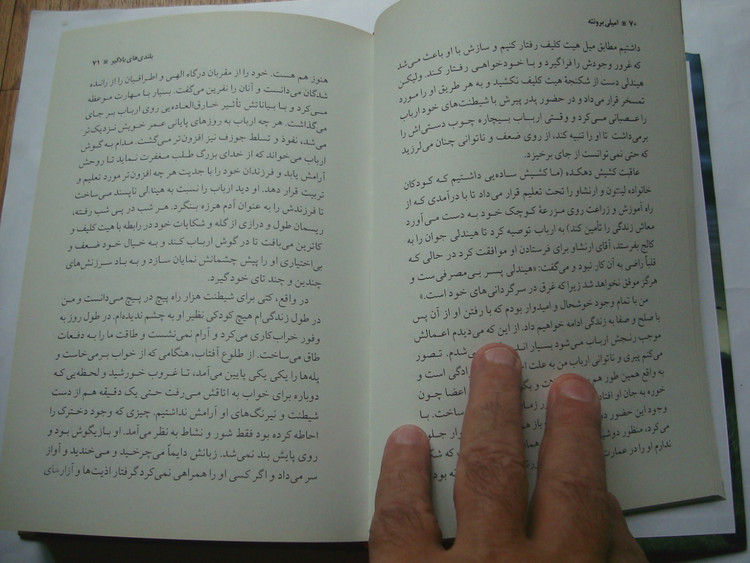 ۷۰ * امیلی برونته
داشتیم مطابق میل هیت کلیف رفتار کنیم و سازش با او باعث می‌شد
که غرور وجودش را فراگیرد و با خودخواهی رفتار کند. ولیکن
هیندلی دست از شکنجهٔ هیت کلیف نکشید و به هر طریق او را مورد
تمسخر قرار می‌داد و در حضور پدر پیرش با شیطنت‌های خود ارباب
را عصبانی می‌کرد و وقتی ارباب بیچاره چوب دستی‌اش را
برمی‌داشت تا او را تنبیه کند، از روی ضعف و ناتوانی چنان می‌لرزید
که حتی نمی‌توانست از جای برخیزد.
عاقبت کشیش دهکده (ما کشیش ساده‌یی داشتیم که کودکان
خانواده لینتون و ارنشاو را تحت تعلیم قرار می‌داد تا با درآمدی که از
راه آموزش و زراعت روی مزرعهٔ کوچک خود به دست می‌آورد
معاش زندگی را تأمین کند) به ارباب توصیه کرد تا هیندلی جوان را به
کالج بفرستد، آقای ارنشاو برای فرستادن او موافقت کرد در حالی که
قلباً راضی به آن کار نبود و می‌گفت: «هیندلی پسر بی‌مصرفی‌ست و
هرگز موفق نخواهد شد زیرا که غرق در سرگردانی‌های خود است.»
من با تمام وجود خوشحال و امیدوار بودم که با رفتن او از آن پس
با صلح و صفا به زندگی ادامه خواهیم داد. از این که می‌دیدم اعمالش
موجب رنجش ارباب می‌شود بسیار می‌شدم. تصور
می‌کنم پیری و ناتوانی ارباب من به علت است و
به واقع همین طور هم و یک اعضا چون
خوره به جان او ساخت. با
وجود این حضور باز هم جلو
می‌کرد، منظور
ندارم او را در عمارت بود
بلندی‌های بادگیر * ۷۱
هنوز هم هست. خود را از مقربان درگاه الهی و اطرافیان را از رانده
شدگان می‌دانست و آنان را نفرین می‌گفت. بسیار با مهارت موعظه
می‌کرد و با بیاناتش تأثیر خارق‌العاده‌یی روی ارباب بر جای
می‌گذاشت. هر چه ارباب به روزهای پایانی عمر خویش نزدیک‌تر
می‌شد، نفوذ و تسلط جوزف نیز افزون‌تر می‌گشت. مدام به گوش
ارباب می‌خواند که از خدای بزرگ طلب مغفرت نماید تا روحش
آرامش یابد و فرزندان خود را با جدیت هر چه افزون‌تر مورد تعلیم و
تربیت قرار دهد. او دید ارباب را نسبت به هیندلی ناپسند می‌ساخت
تا فرزندش را به عنوان آدم هرزه بنگرد. هر شب در پی شب رفته،
ریسمان طول و درازی از گله و شکایات خود در رابطه با هیت کلیف و
کاترین می‌بافت تا در گوش ارباب کند و به خیال خود ضعف و
بی‌اختیاری او را پیش چشمانش نمایان سازد و به باد سرزنش‌های
چندین و چند تای خود گیرد.
در واقع، کتی برای شیطنت هزار راه پیچ در پیچ می‌دانست و من
در طول زندگی‌ام هیچ کودکی نظیر او به چشم ندیده‌ام. در طول روز به
وفور خراب‌کاری می‌کرد و آرام نمی‌نشست و طاقت ما را به دفعات
طاق می‌ساخت. از طلوع آفتاب، هنگامی که از خواب برمی‌خاست و
پله‌ها را یکی یکی پایین می‌آمد، تا غروب خورشید و لحظه‌یی که
دوباره برای خواب به اتاقش می‌رفت حتی یک دقیقه هم از دست
شیطنت و نیرنگ‌های او آرامش نداشتیم. چیزی که وجود دخترک را
احاطه کرده بود فقط شور و نشاط به نظر می‌آمد. او بازیگوش بود و
روی پایش بند نمی‌شد. زبانش دایماً می‌چرخید و می‌خندید و آواز
سر می‌داد و اگر کسی او را همراهی نمی‌کرد گرفتار اذیت‌ها و آزارهای